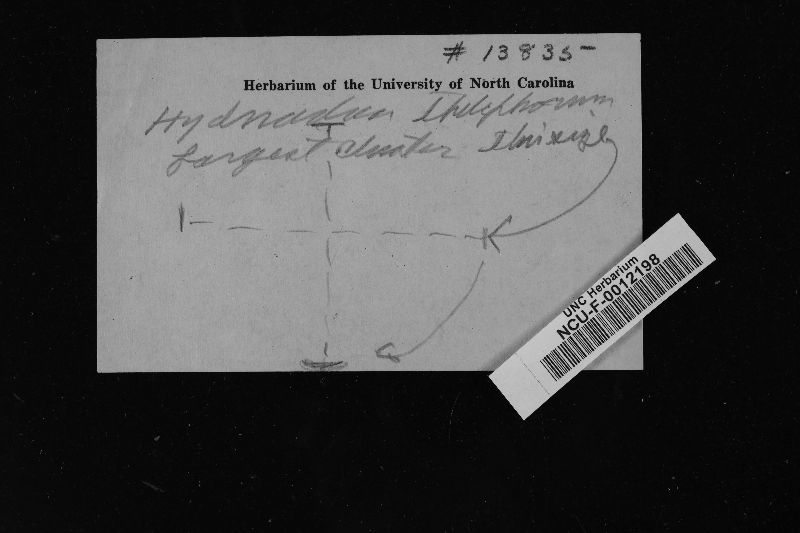 # 13835
Herbarium of the University of North Carolina
Largest cluster this size
UNC Herbarium
NCU-F-0012198